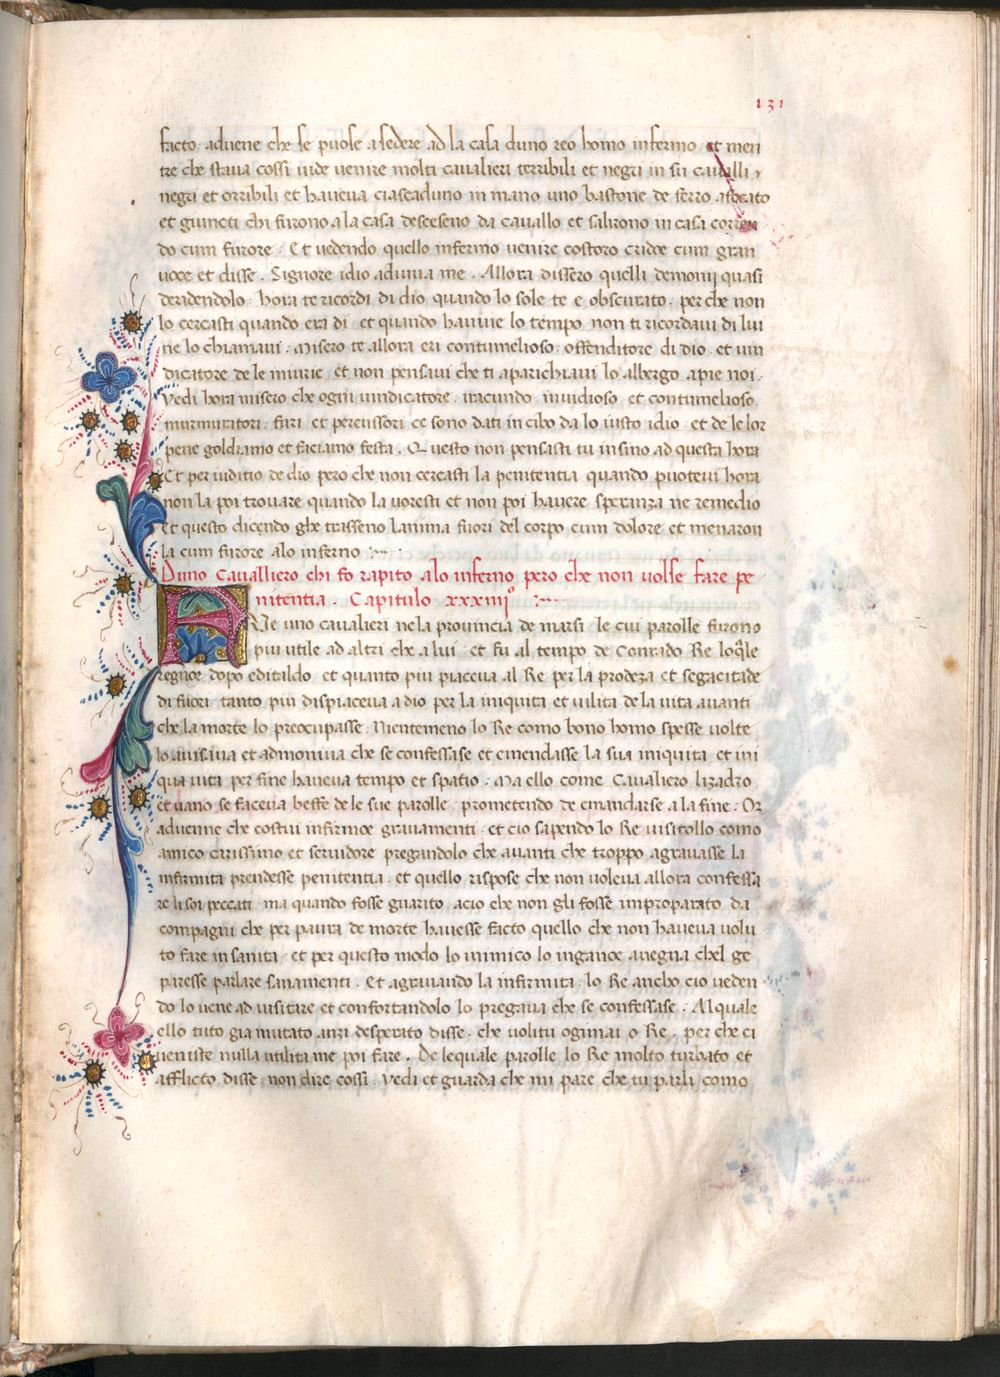 131
facto aduene che se puose a sedere ad la casa duno reo homo infermo et men
tre che staua cossi uide uenire molti caualieri terribili et negri in su caualli
negri et orribili et haueua ciascaduno in mano uno bastone de ferro afocato
et giuncti chi furono a la casa desceseno da cauallo et salirono in casa corren
do cum furore. Et uedendo quello infermo uenire costoro cridoe cum gran
uoce et disse. Signore idio adiuua me. Allora dissero quelli demonij quasi
deridendolo. hora te ricordi di dio quando lo sole te e obscurato. per che non
lo cercasti quando era di et quando hauiue lo tempo non ti ricordaui di lui
ne lo chiamaui. Misero te allora eri contumelioso offenditore di dio et uin
dicatore de le iniurie et non pensaui che ti aparichiaui lo albergo apie noi.
Vedi hora misero che ogni uindicatore iracundo inuidioso et contumelioso
murmuratori furi et percussori ce sono dati in cibo da lo iusto idio et de le lor
pene goldiamo et faciamo festa. Questo non pensasti tu insino ad questa hora
Et per iuditio de dio pero che non cercasti la penitentia quando puoteui hora
non la poi trouare quando la uoresti et non poi hauere speranza ne remedio
Et questo dicendo ghe trasseno lanima fuori del corpo cum dolore et menaron
la cum furore alo inferno
Duno Caualliero chi fo rapito alo inferno pero che non uolse fare pe
nitentia. Capitulo xxxiiijº
FVe uno caualieri nela prouincia de marsi le cui parolle furono
piu utile ad altri che a lui et fu al tempo de Conrado Re loq̃le
regnoe dopo editaldo et quanto piu piaceua al Re per la prodeza et segacitade
di fuori tanto piu dispiaceua a dio per la iniquita et uilita de la uita auanti
che la morte lo preocupasse. Nientemeno lo Re como bono homo spesse uolte
lo auisaua et admoniua che se confessase et emendasse la sua iniquita et ini
qua uita per fine haueua tempo et spatio. Ma ello come Caualiero lizadro
et uano se faceua beffe de le sue parolle prometendo de emandarse a la fine. Or
aduenne che costui infirmoe grauamenti et cio sapendo lo Re uisitollo como
amico carissimo et seruidore pregandolo che auanti che troppo agrauasse la
infirmita prendesse penitentia et quello rispose che non uoleua allora confessa
re li soi peccati ma quando fosse guarito acio che non gli fosse improparato da
compagni che per paura de morte hauesse facto quello che non haueua uolu
to fare in sanita et per questo modo lo inimico lo ingance auegna chel ge
paresse parlare sanamenti. Et agrauando la infirmita lo Re ancho cio ueden
do lo uene ad uisitare et confortandolo lo pregaua che se confessase. Al quale
ello tuto gia mutato anzi desperato disse. che uolitu ogimai o Re. per che ci
ueniste nulla utilita me poi fare. De lequale parolle lo Re molto turbato et
afflicto disse non dire cossi. Vedi et guarda che mi pare che tu parli como